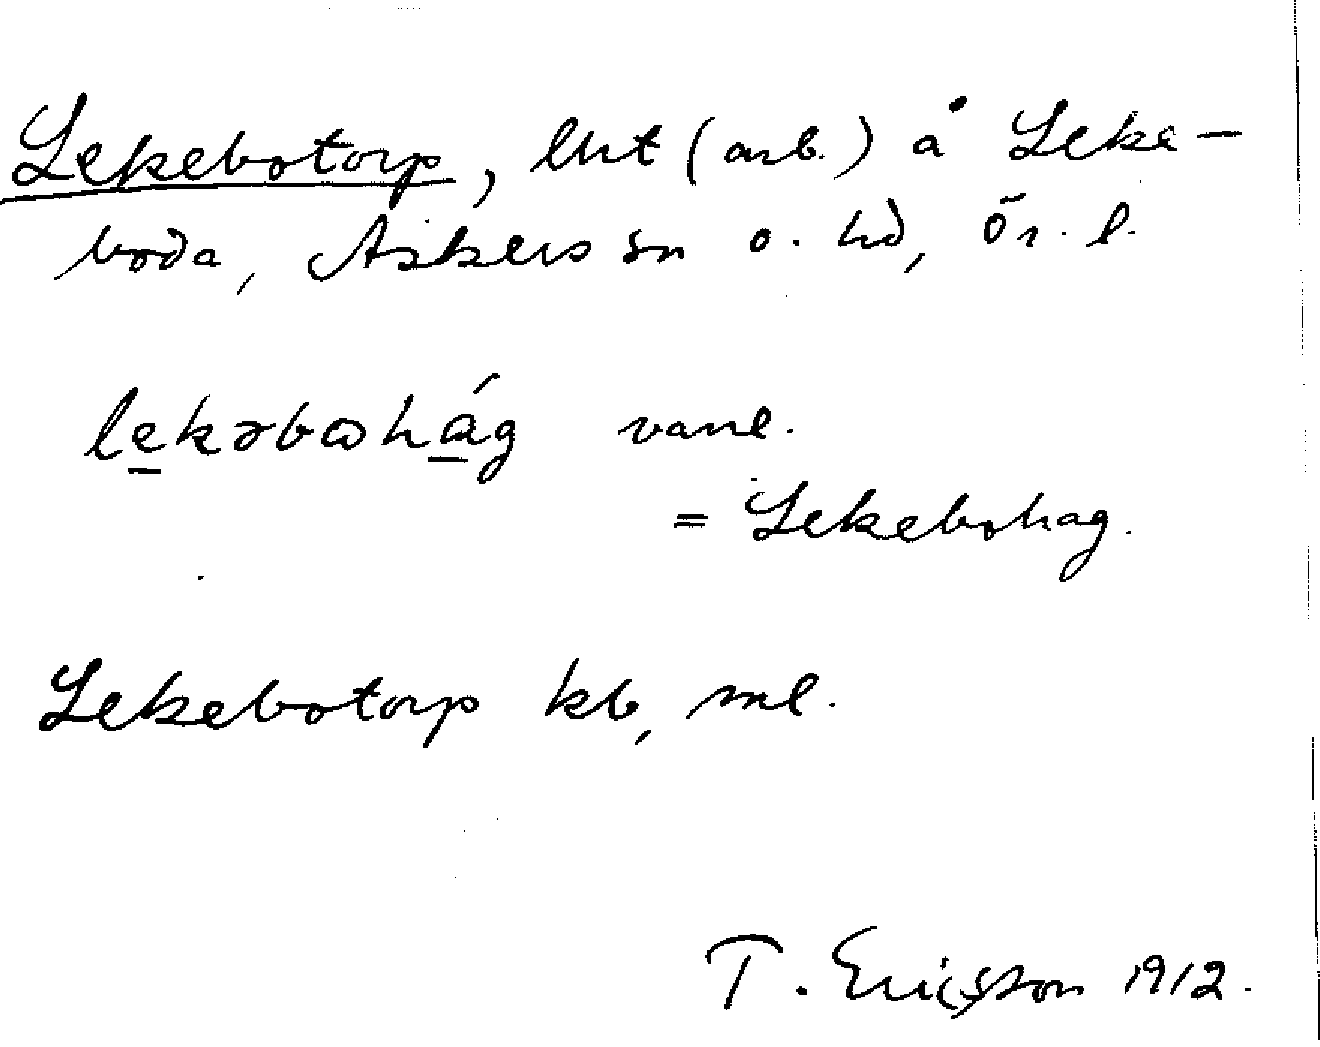 Lekebotorp, lht (arb.) å Leke-
boda, Askers sn o. hd, Ör. l.
lekəbωhág vanl.
= Lekebohag.
Lekebotorp kb, ml.
T. Ericsson 1912.